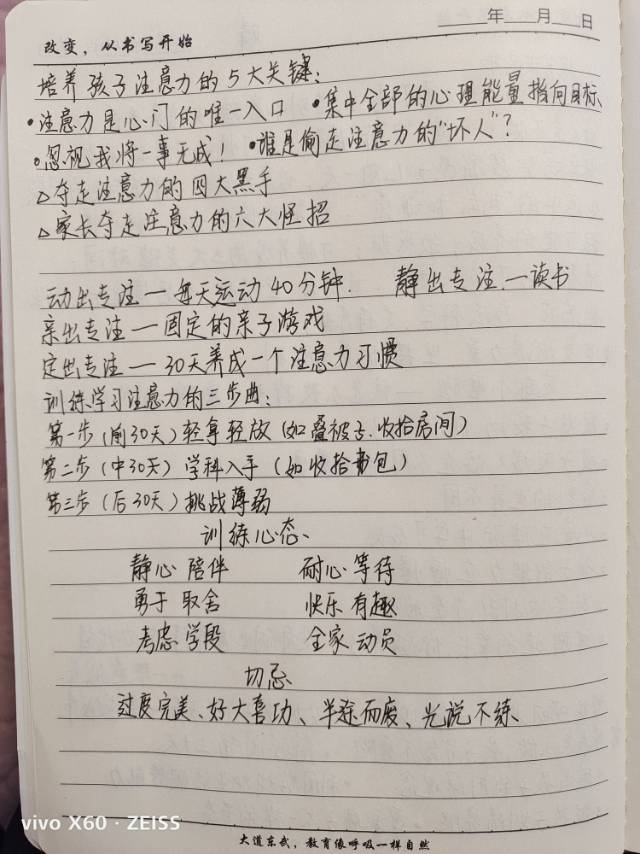 ____年____月____日
改变，从书写开始
培养孩子注意力的5大关键：
•注意力是心门的唯一入口 •集中全部的心理能量指向目标
•忽视我将一事无成！ •谁是偷走注意力的"坏人"？
△夺走注意力的四大黑手
△家长夺走注意力的六大怪招
动出专注一每天运动40分钟. 静出专注一读书
亲出专注一固定的亲子游戏
定出专注一30天养成一个注意力习惯
训练学习注意力的三步曲：
第一步（前30天）轻拿轻放（如叠被子、收拾房间）
第二步（中30天）学科入手（如收拾书包）
第三步（后30天）挑战薄弱
训练心态、
静心 陪伴 耐心 等待
勇于 取舍 快乐 有趣
考虑 学段 全家 动员
切忌
过度完美、好大喜功、半途而废、光说不练、
vivo X60 · ZEISS
大道东武，教育像呼吸一样自然